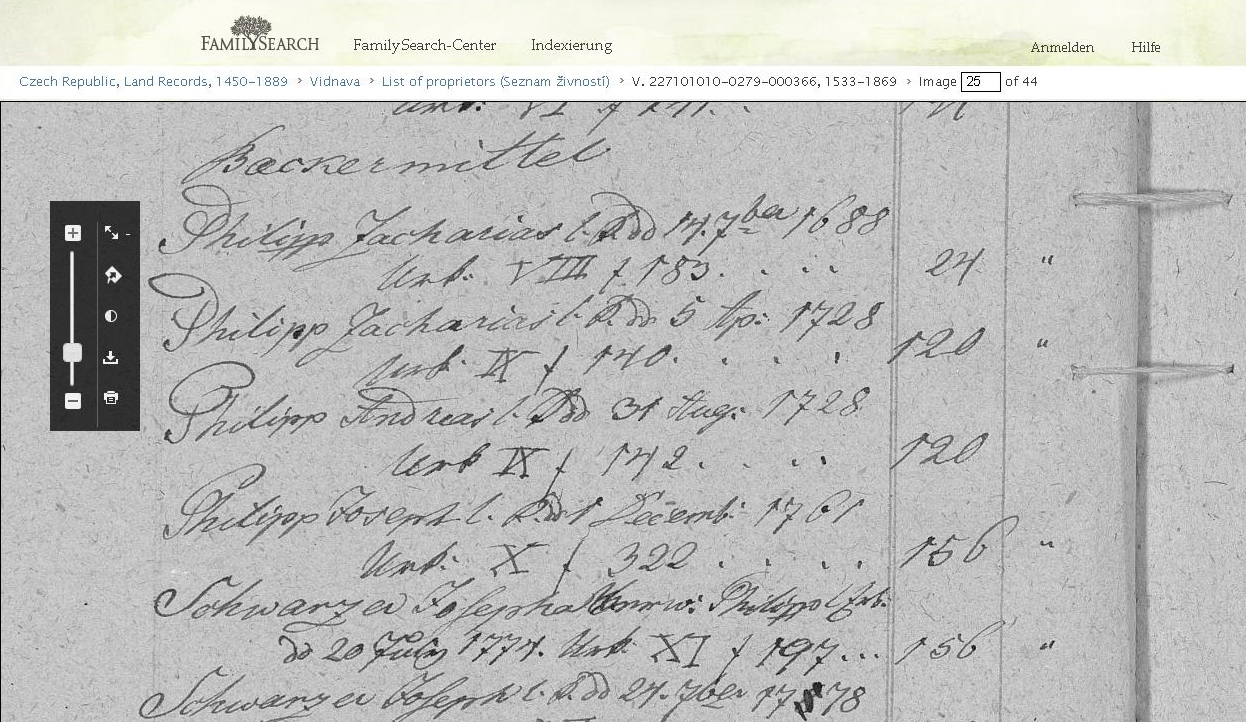 FAMILYSEARCH FamilySearch-Center Indexierung Anmelden Hilfe
Czech Republic, Land Records, 1450-1889 > Vidnava > List of proprietors (Seznam živností) > V. 227101010-0279-000366, 1533-1869 > Image 25 of 44
Urb: VI f
Backermittel
Philipp Zacharias l. K. dd 14. 7ber 1688
Urb. VIII f 183. . . . 24 "
Philipp Zacharias l. K. dd 5 Ap: 1728
Urb. IX f 140. . . . 120 "
Philipp Andreas l. K. dd 31 Aug: 1728
Urb IX f 142. . . . 120
Philipp Joseph l. K. dd 1 Decemb: 1761
Urb: X f 322 . . . . 156 "
Schwarzer Josepha Philipp
dd 20 July 1774. Urb. XI f 197... 156 "
Schwarzer Joseph l. K. dd 24. 7ber 1778